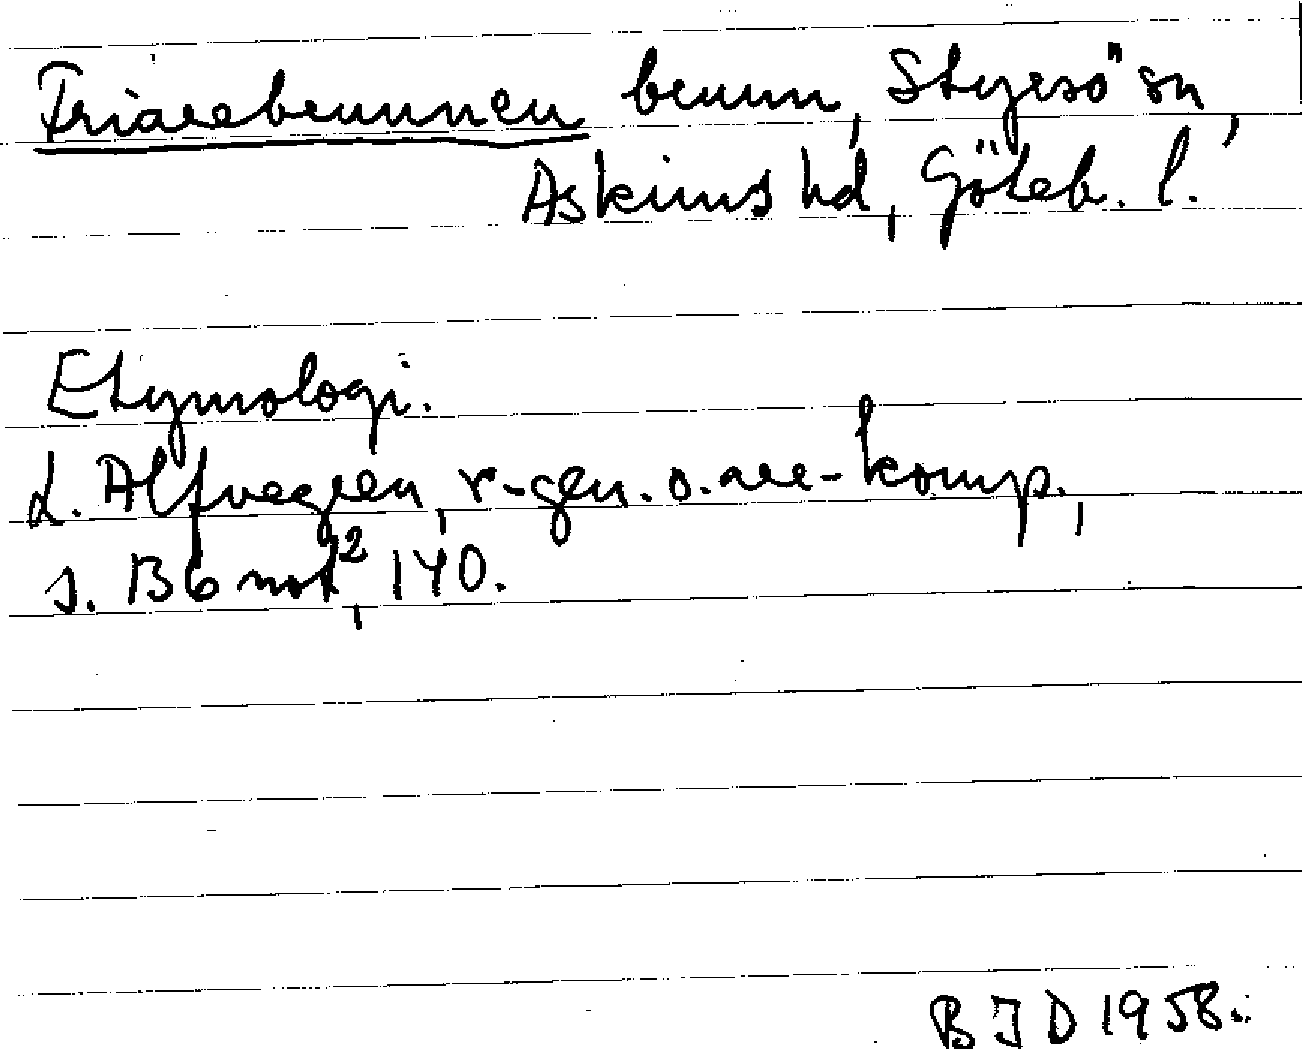 Friarebrunnen brunn, Styrsö sn,
Askims hd, Göteb. l.
Etymologi.
L. Alfvegren, r-gen. o. are-komp.,
s. 136 not 2, 140.
BJD 1958.